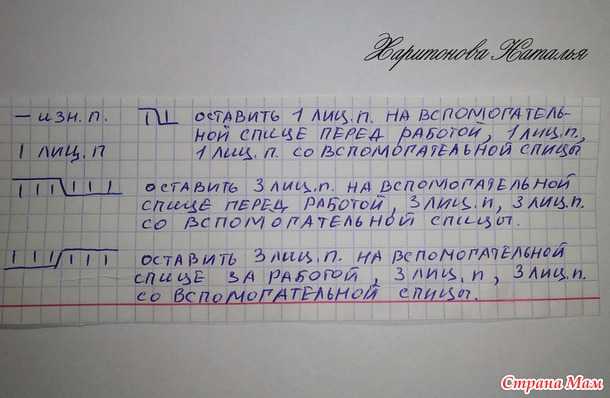 Харитонова Наталья
— изн. п.
| лиц. п
оставить 1 лиц. п. на вспомогатель-
ной спице перед работой, 1 лиц. п,
1 лиц. п. со вспомогательной спицы
оставить 3 лиц. п. на вспомогательной
спице перед работой, 3 лиц. п, 3 лиц. п.
со вспомогательной спицы.
оставить 3 лиц. п. на вспомогательной
спице за работой, 3 лиц. п, 3 лиц. п.
со вспомогательной спицы.
Страна Мам